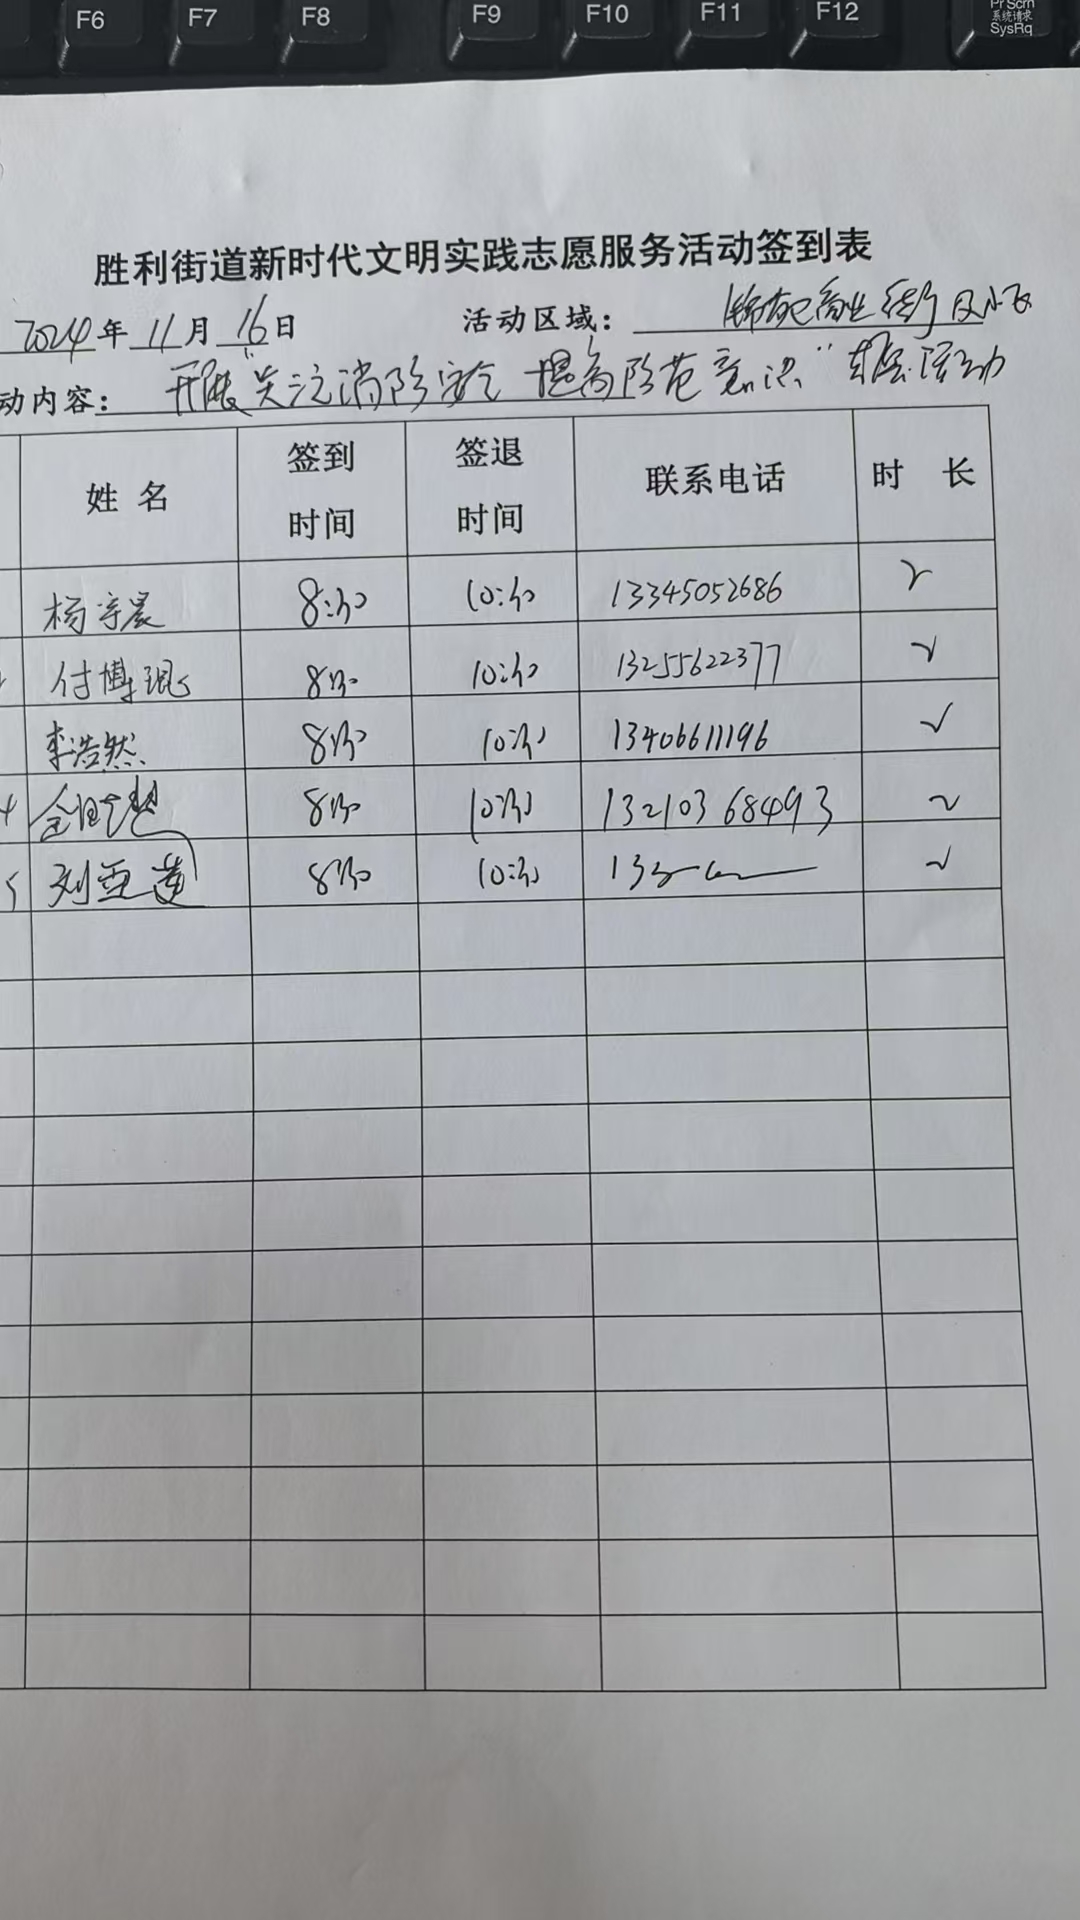 F6 F7 F8 F9 F10 F11 F12 PrScrn
系统请求
SysRq
胜利街道新时代文明实践志愿服务活动签到表
2024年11月16日 活动区域：锦苑商业街及小区
动内容：开展"关注消防安全 提高防范意识"志愿活动
姓名 签到时间 签退时间 联系电话 时 长
杨宇晨 8:30 10:30 13345052686 2
付博琨 8:30 10:30 13255622377 2
李浩然 8:30 10:30 13406611196 2
4 8:30 10:30 13210368493 2
5 刘亚 8:30 10:30 2